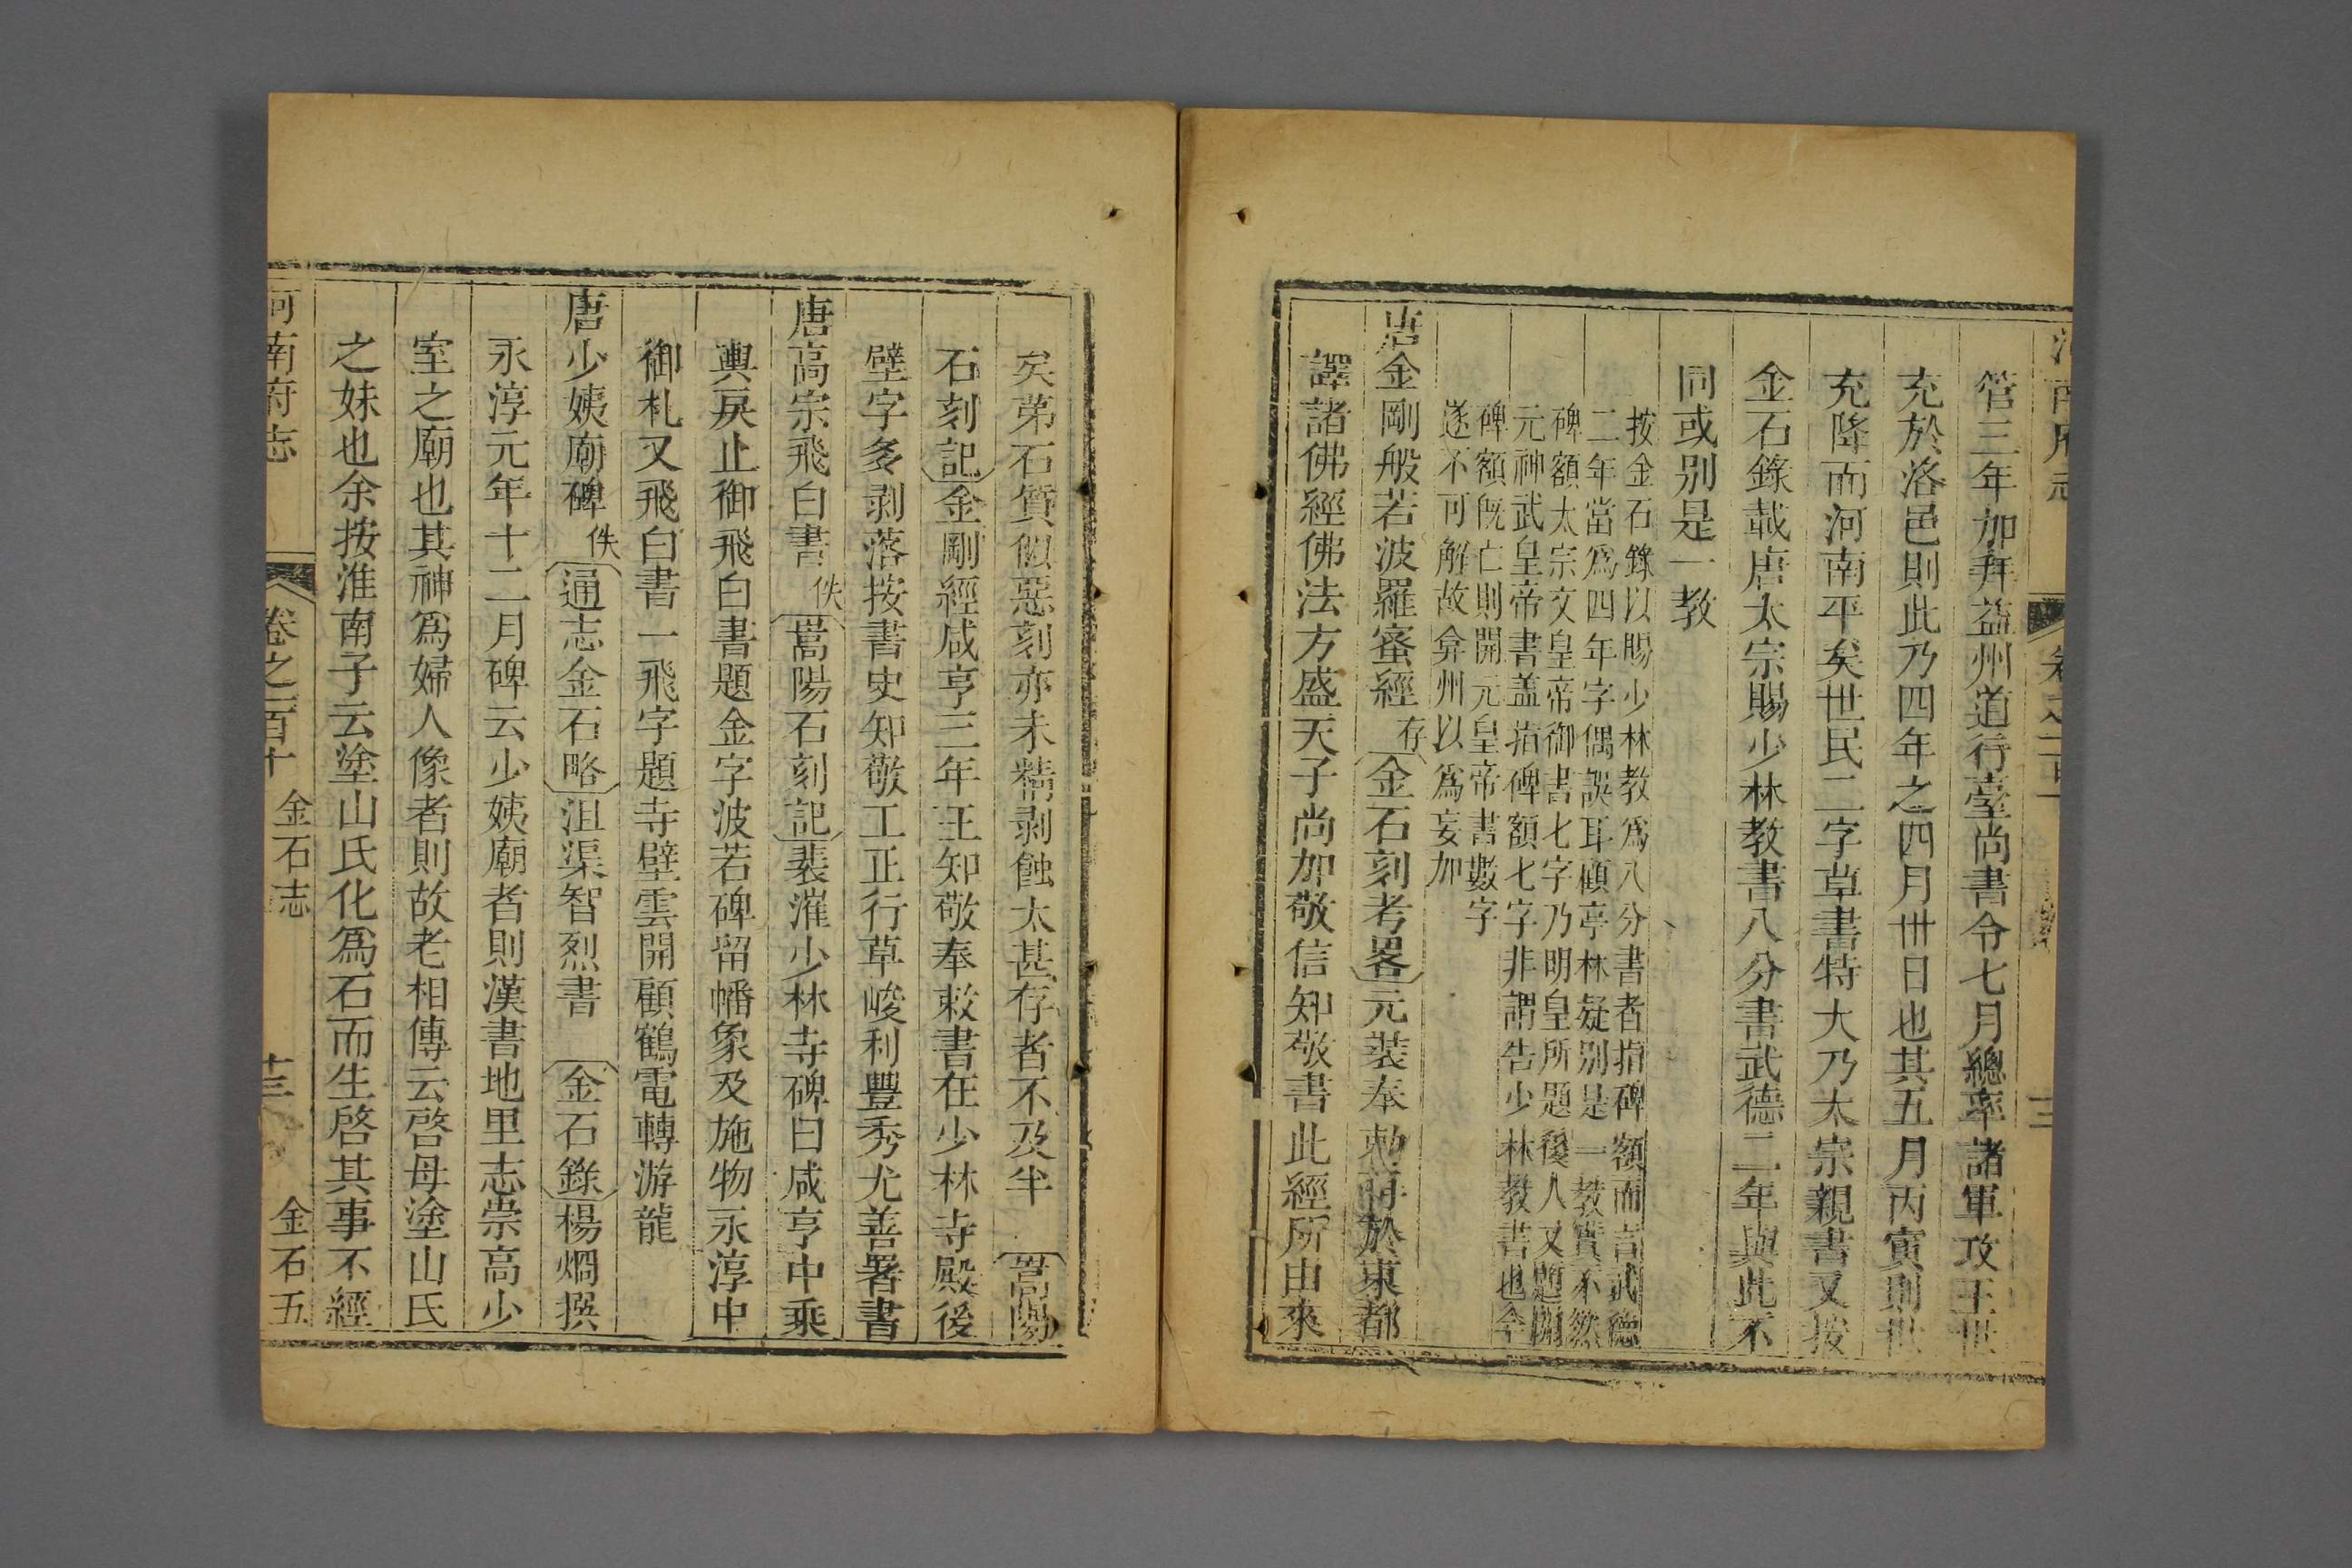 管三年加拜益州道行臺尚書令七月總率諸軍攻王世
充於洛邑則此乃四年之四月卅日也其五月丙寅則世
充降而河南平矣世民二字草書特大乃太宗親書又按
金石錄載唐太宗賜少林教書八分書武德二年與此不
同或别是一教
按金石錄以賜少林教爲八分書者指碑額而言武德
二年當爲四年字偶誤耳顧亭林疑别是一教實不然
碑額太宗文皇帝御書七字乃明皇所題後人又題開
元神武皇帝書蓋指碑額七字非謂告少林教書也今
碑額旣亡則開元皇帝書數字
遂不可解故弇州以爲妄加
唐金剛般若波羅蜜經 存 金石刻考畧 元奘奉勅 於東都
譯諸佛經佛法方盛天子尚加敬信知敬書此經所由來
矣苐石質似惡刻亦未精剥蝕太甚存者不及半 嵩陽
石刻記 金剛經咸亨三年王知敬奉敕書在少林寺殿後
壁字多剥落按書史知敬工正行草峻利豐秀尤善署書
唐高宗飛白書 佚 嵩陽石刻記 裴漼少林寺碑曰咸亨中乘
輿戾止御飛白書題金字波若碑留幡象及施物永淳中
御札又飛白書一飛字題寺壁雲開顧鶴電轉游龍
唐少姨廟碑 佚 通志金石略 沮渠智烈書 金石錄 楊烱撰
永淳元年十二月碑云少姨廟者則漢書地里志崇高少
室之廟也其神爲婦人像者則故老相傳云啓母塗山氏
之妹也余按淮南子云塗山氏化爲石而生啓其事不經
河南府志 卷之一百十 金石志 十三 金石五